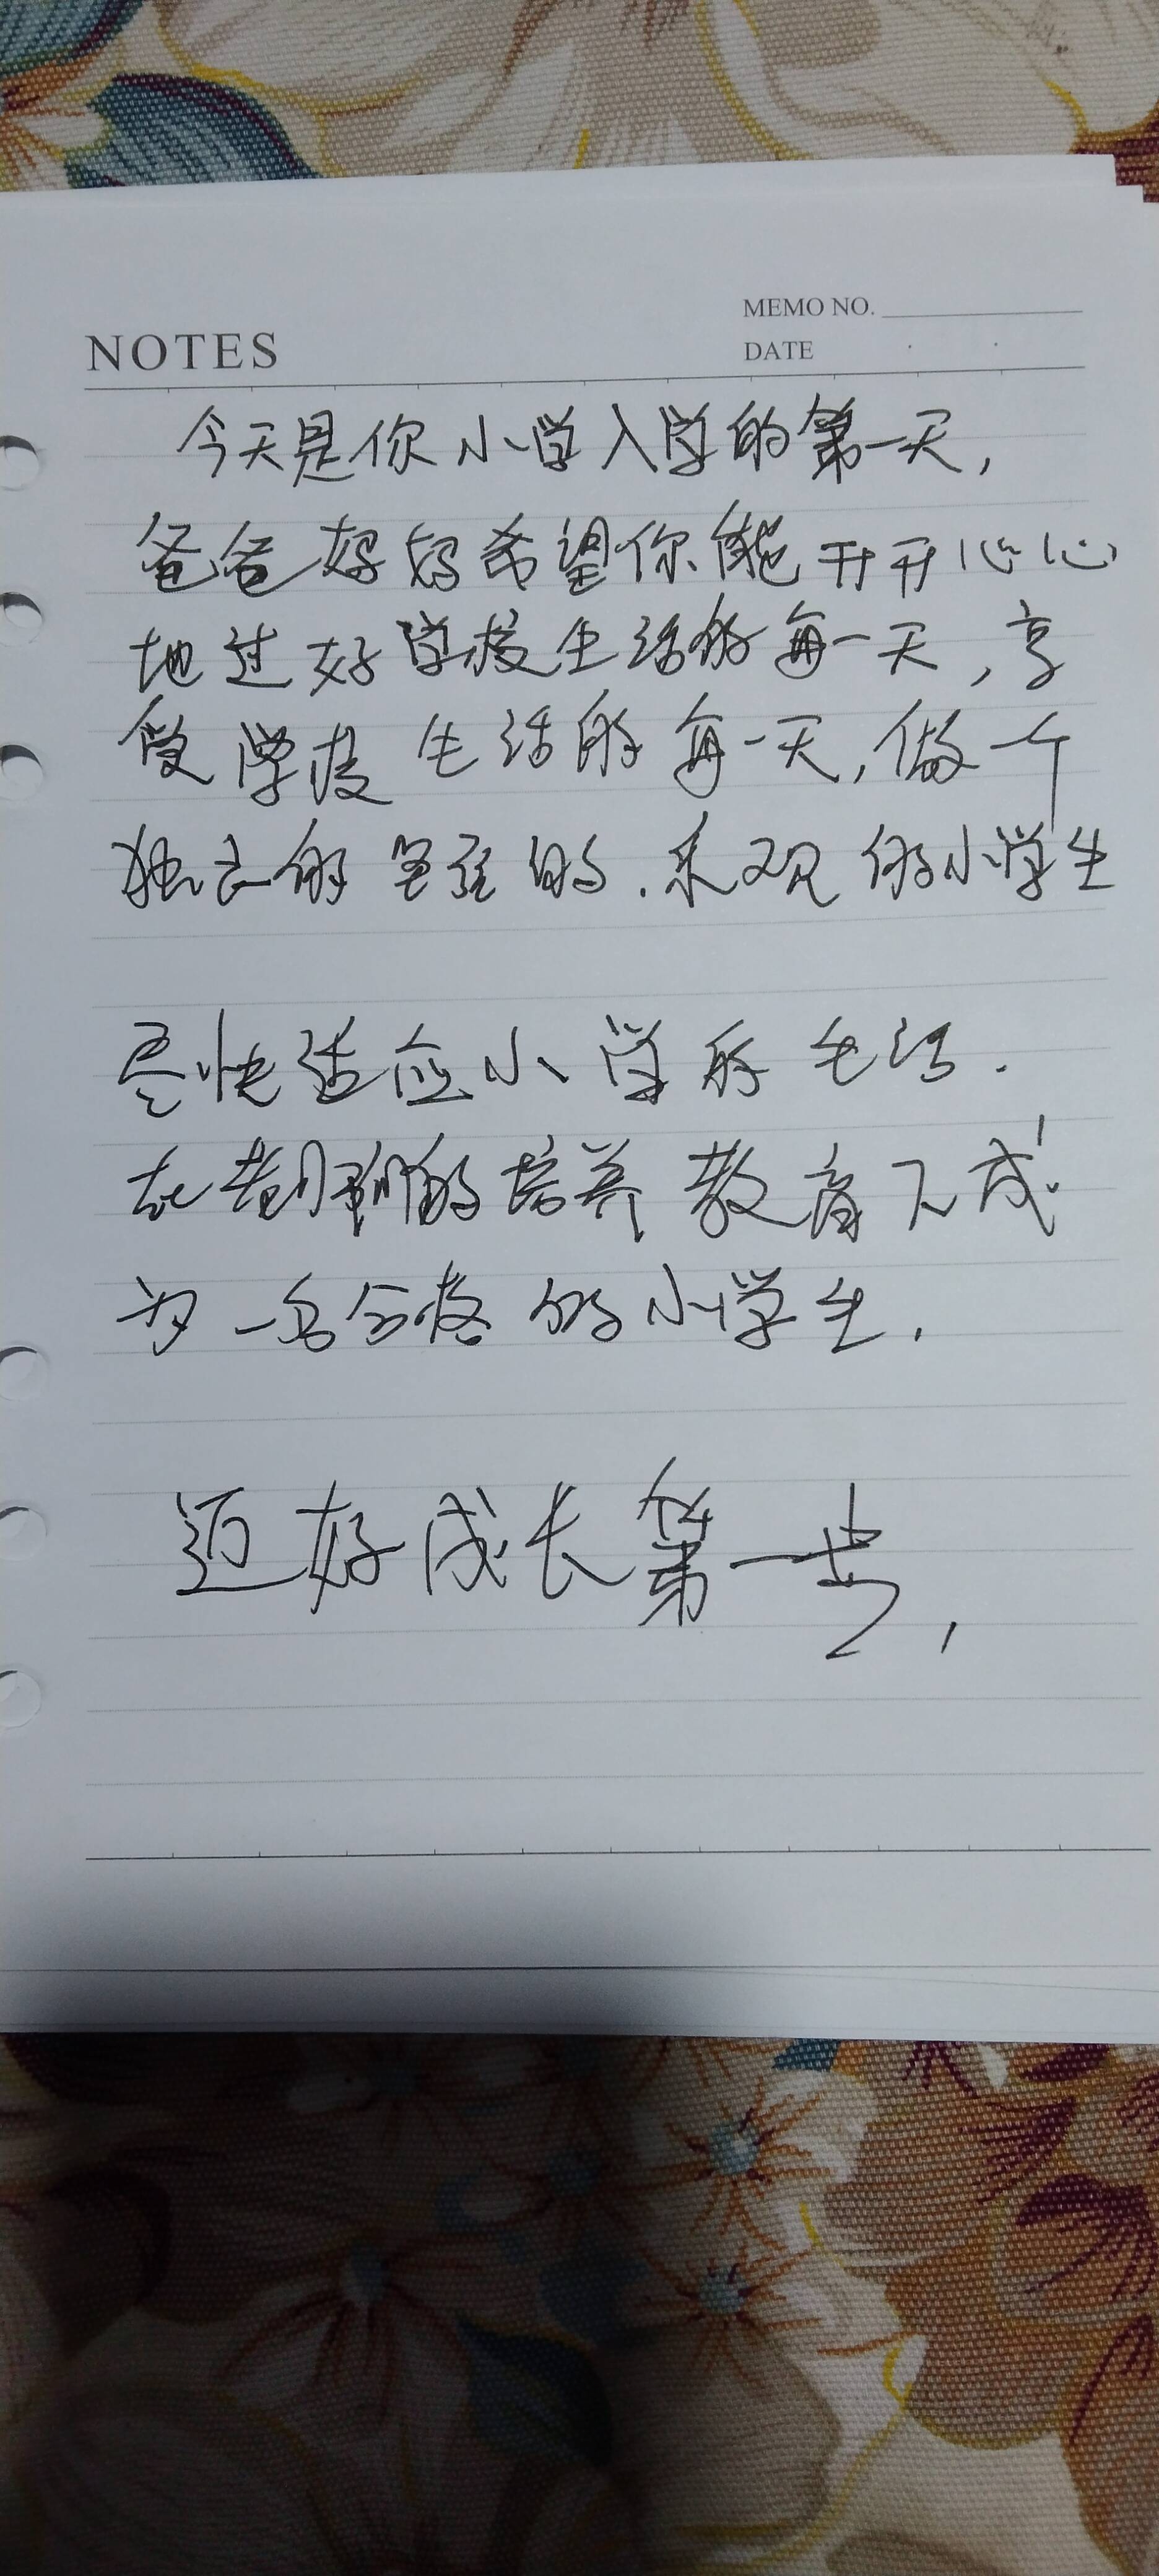 MEMO NO.
NOTES
DATE
今天是你小学入学的第一天,
爸爸妈妈希望你能开开心心
地过好学校生活的每一天,享
受学校生活的每一天,做一个
独立的坚强的.乐观的小学生
尽快适应小学的生活.
在老师的培养教育下成
为一名合格的小学生.
迈好成长第一步,